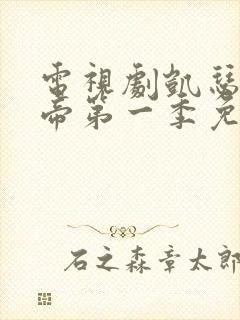 電視劇凱瑟
帝第一季免
石之森章太郎